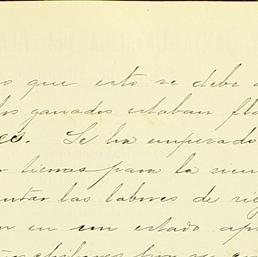 que esto se debe
los ganados estaban
Se ha emperado
tierras para la siem
ntar las labores de
en un estado